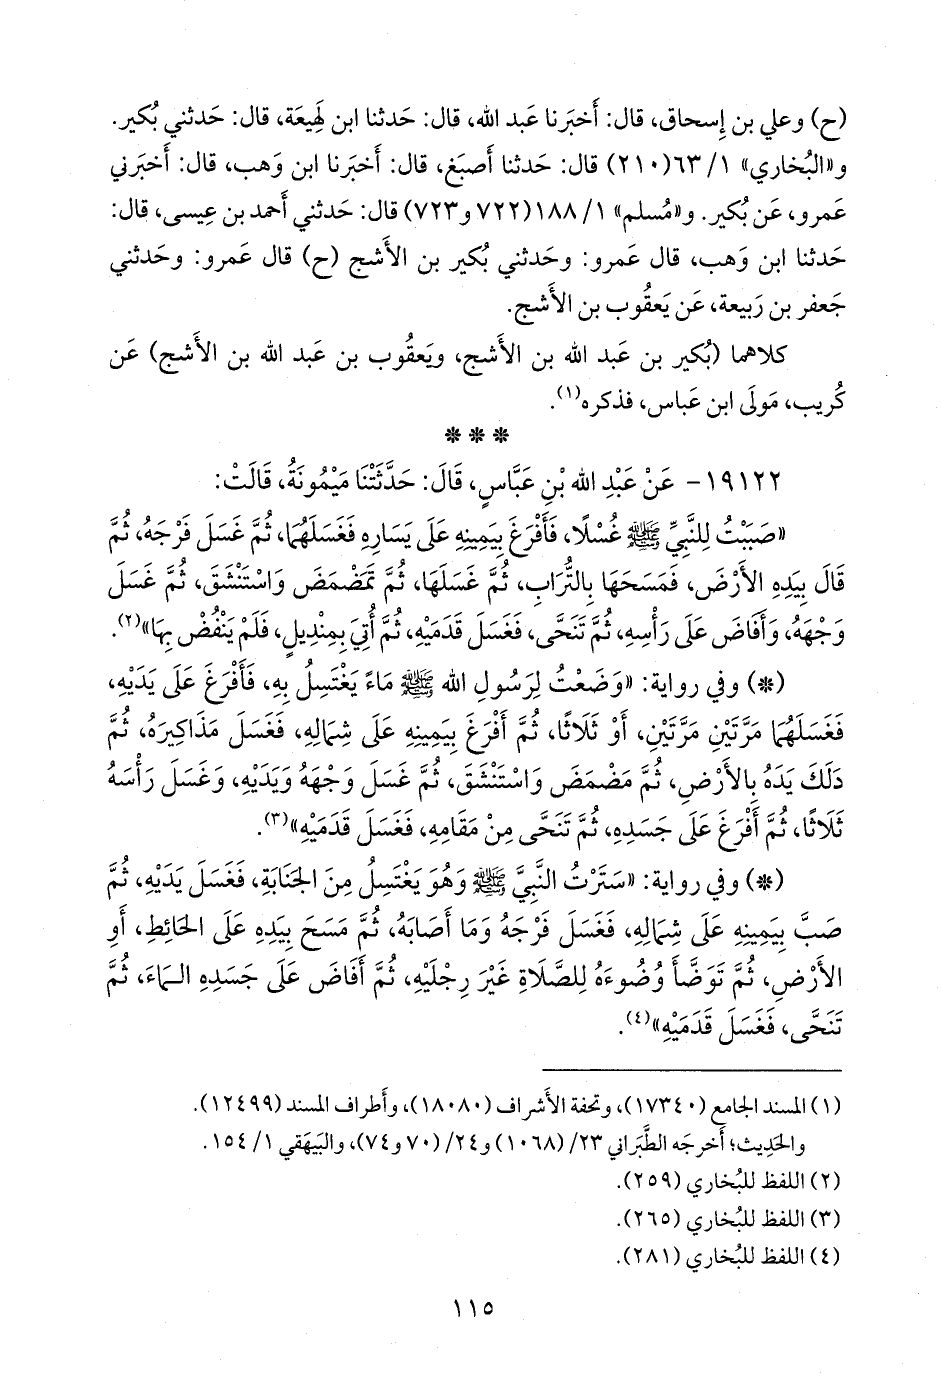 (ح) وعلي بن إسحاق، قال: أَخبَرنا عَبد الله، قال: حَدثنا ابن لَهيعَة، قال: حَدثني بُكير.
و«البُخاري» ١/ ٦٣(٢١٠) قال: حَدثنا أَصبَغ، قال: أَخبَرنا ابن وَهب، قال: أَخبَرني
عَمرو، عَن بُكير. و«مُسلم» ١/ ١٨٨(٧٢٢ و٧٢٣) قال: حَدثني أَحمد بن عِيسى، قال:
حَدثنا ابن وَهب، قال عَمرو: وحَدثني بُكير بن الأَشج (ح) قال عَمرو: وحَدثني
جَعفر بن رَبيعة، عَن يَعقُوب بن الأَشج.
كلاهما (بُكير بن عَبد الله بن الأَشج، ويَعقُوب بن عَبد الله بن الأَشج) عَن
كُريب، مَولَى ابن عَباس، فذكره(١).
* * *
١٩١٢٢- عَنْ عَبْدِ الله بْنِ عَبَّاسٍ، قَالَ: حَدَّثَتْنَا مَيْمُونَةُ، قَالَتْ:
«صَبَبْتُ لِلنَّبِيِّ ﷺ غُسْلًا، فَأَفْرَغَ بِيَمِينِهِ عَلَى يَسَارِهِ فَغَسَلَهُمَا، ثُمَّ غَسَلَ فَرْجَهُ، ثُمَّ
قَالَ بِيَدِهِ الأَرْضَ، فَمَسَحَهَا بِالتُّرَابِ، ثُمَّ غَسَلَهَا، ثُمَّ تَمَضْمَضَ وَاسْتَنْشَقَ، ثُمَّ غَسَلَ
وَجْهَهُ، وَأَفَاضَ عَلَى رَأْسِهِ، ثُمَّ تَنَحَّى، فَغَسَلَ قَدَمَيْهِ، ثُمَّ أُتِيَ بِمِنْدِيلٍ، فَلَمْ يَنْفُضْ بِهَا»(٢).
(*) وفي رواية: «وَضَعْتُ لِرَسُولِ الله ﷺ مَاءً يَغْتَسِلُ بِهِ، فَأَفْرَغَ عَلَى يَدَيْهِ،
فَغَسَلَهُمَا مَرَّتَيْنِ مَرَّتَيْنِ، أَوْ ثَلَاثًا، ثُمَّ أَفْرَغَ بِيَمِينِهِ عَلَى شِمَالِهِ، فَغَسَلَ مَذَاكِيرَهُ، ثُمَّ
دَلَكَ يَدَهُ بِالأَرْضِ، ثُمَّ مَضْمَضَ وَاسْتَنْشَقَ، ثُمَّ غَسَلَ وَجْهَهُ وَيَدَيْهِ، وَغَسَلَ رَأْسَهُ
ثَلَاثًا، ثُمَّ أَفْرَغَ عَلَى جَسَدِهِ، ثُمَّ تَنَحَّى مِنْ مَقَامِهِ، فَغَسَلَ قَدَمَيْهِ»(٣).
(*) وفي رواية: «سَتَرْتُ النَّبِيَّ ﷺ وَهُوَ يَغْتَسِلُ مِنَ الجَنَابَةِ، فَغَسَلَ يَدَيْهِ، ثُمَّ
صَبَّ بِيَمِينِهِ عَلَى شِمَالِهِ، فَغَسَلَ فَرْجَهُ وَمَا أَصَابَهُ، ثُمَّ مَسَحَ بِيَدِهِ عَلَى الحَائِطِ، أَوِ
الأَرْضِ، ثُمَّ تَوَضَّأَ وُضُوءَهُ لِلصَّلَاةِ غَيْرَ رِجْلَيْهِ، ثُمَّ أَفَاضَ عَلَى جَسَدِهِ المَاءَ، ثُمَّ
تَنَحَّى، فَغَسَلَ قَدَمَيْهِ»(٤).
(١) المسند الجامع (١٧٣٤٠)، وتحفة الأَشراف (١٨٠٨٠)، وأطراف المسند (١٢٤٩٩).
والحَدِيث؛ أخرجَه الطَّبَراني ٢٣/ (١٠٦٨) و٢٤/ (٧٠ و٧٤)، والبَيهَقي ١/ ١٥٤.
(٢) اللفظ للبُخاري (٢٥٩).
(٣) اللفظ للبُخاري (٢٦٥).
(٤) اللفظ للبُخاري (٢٨١).
١١٥